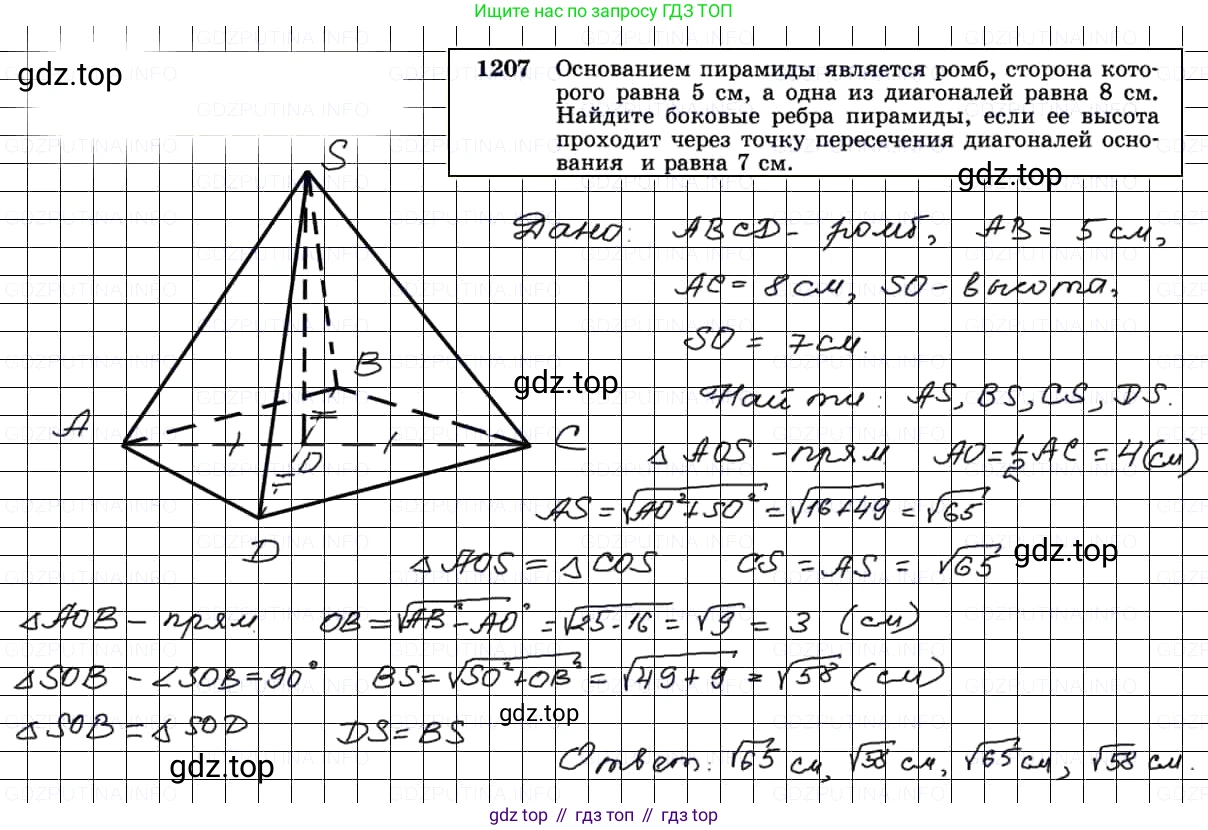 Ищите нас по запросу ГДЗ ТОП
gdz.top
1207 Основанием пирамиды является ромб, сторона кото-
рого равна 5 см, а одна из диагоналей равна 8 см.
Найдите боковые ребра пирамиды, если ее высота
проходит через точку пересечения диагоналей осно-
вания и равна 7 см.
gdz.top
S
Дано: ABCD - ромб, AB = 5 см,
AC = 8 см, SO - высота,
SO = 7 см.
B
gdz.top
Найти: AS, BS, CS, DS.
A
C
O
D
△ AOS - прям AO = 1/2 AC = 4 (см)
AS = √AO² + SO² = √16+49 = √65
gdz.top
△ AOS = △ COS CS = AS = √65
△ AOB - прям. OB = √AB² - AO² = √25-16 = √9 = 3 (см)
△ SOB - ∠SOB = 90° BS = √SO² + OB² = √49+9 = √58 (см)
gdz.top
△ SOB = △ SOD DS = BS
gdz.top
Ответ: √65 см, √58 см, √65 см, √58 см.
gdz top // гдз топ // gdz top
GDZPUTINA.INFO